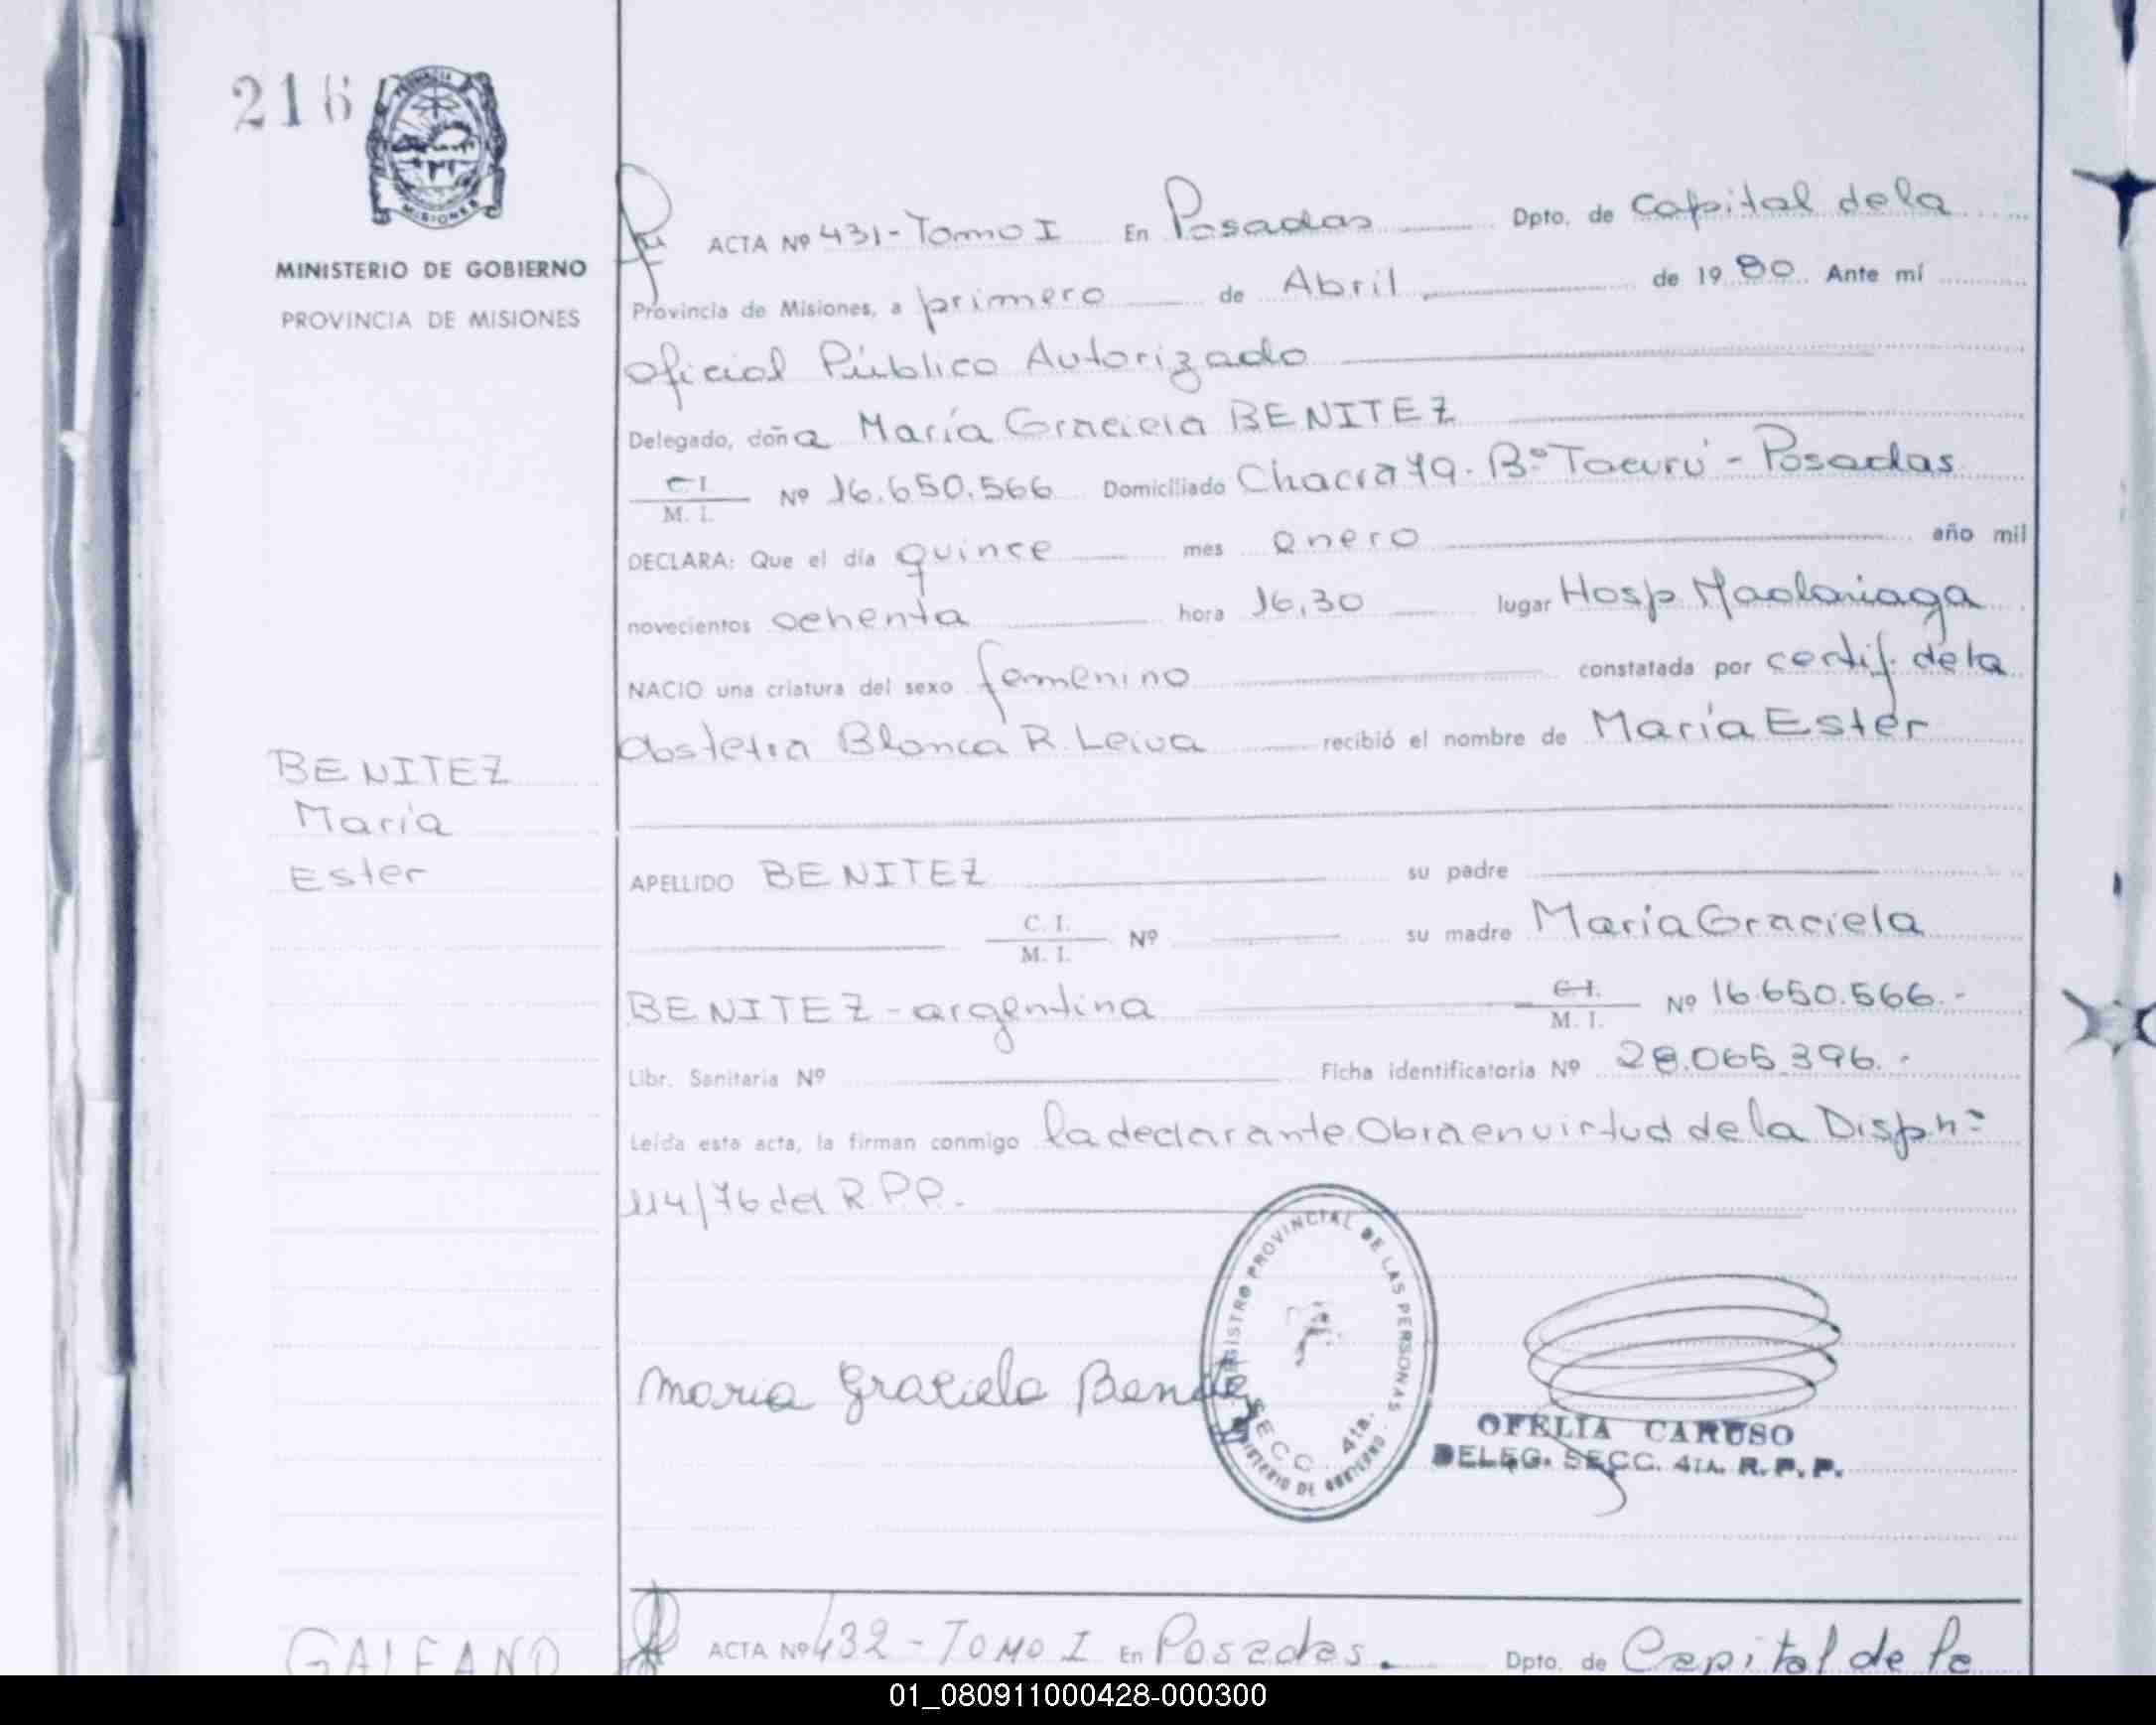 216
MINISTERIO DE GOBIERNO
PROVINCIA DE MISIONES
ACTA Nº 431-Tomo I En Posadas Dpto. de Capital de la
Provincia de Misiones, a primero de Abril de 1980. Ante mí
Oficial Público Autorizado
Delegado, doña María Graciela BENITEZ
C I
M. I. Nº 16.650.566 Domiciliado Chacra 79. Bº Tacurú - Posadas
DECLARA: Que el día quince mes enero año mil
novecientos ochenta hora 16,30 lugar Hosp Madariaga
NACIO una criatura del sexo femenino constatada por certif. de la
Obstetra Blanca R. Leiva recibió el nombre de María Ester
BENITEZ
María
Ester
APELLIDO BENITEZ su padre
C. I.
M. I. Nº su madre María Graciela
BENITEZ - argentina C. I.
M. I. Nº 16.650.566.-
Libr. Sanitaria Nº Ficha identificatoria Nº 28.065.396.-
Leída esta acta, la firman conmigo la declarante. Obra en virtud de la Disp nº
114/76 del R.P.P.-
REGISTRO PROVINCIAL DE LAS PERSONAS
SECC. 4ta.
MINISTERIO DE GOBIERNO
Maria Graciela Benitez
OFELIA CARUSO
DELEG. SECC. 4TA. R. P. P.
GALEANO
ACTA Nº 432 - TOMO I En Posadas. Dpto. de Capital de la
01_080911000428-000300